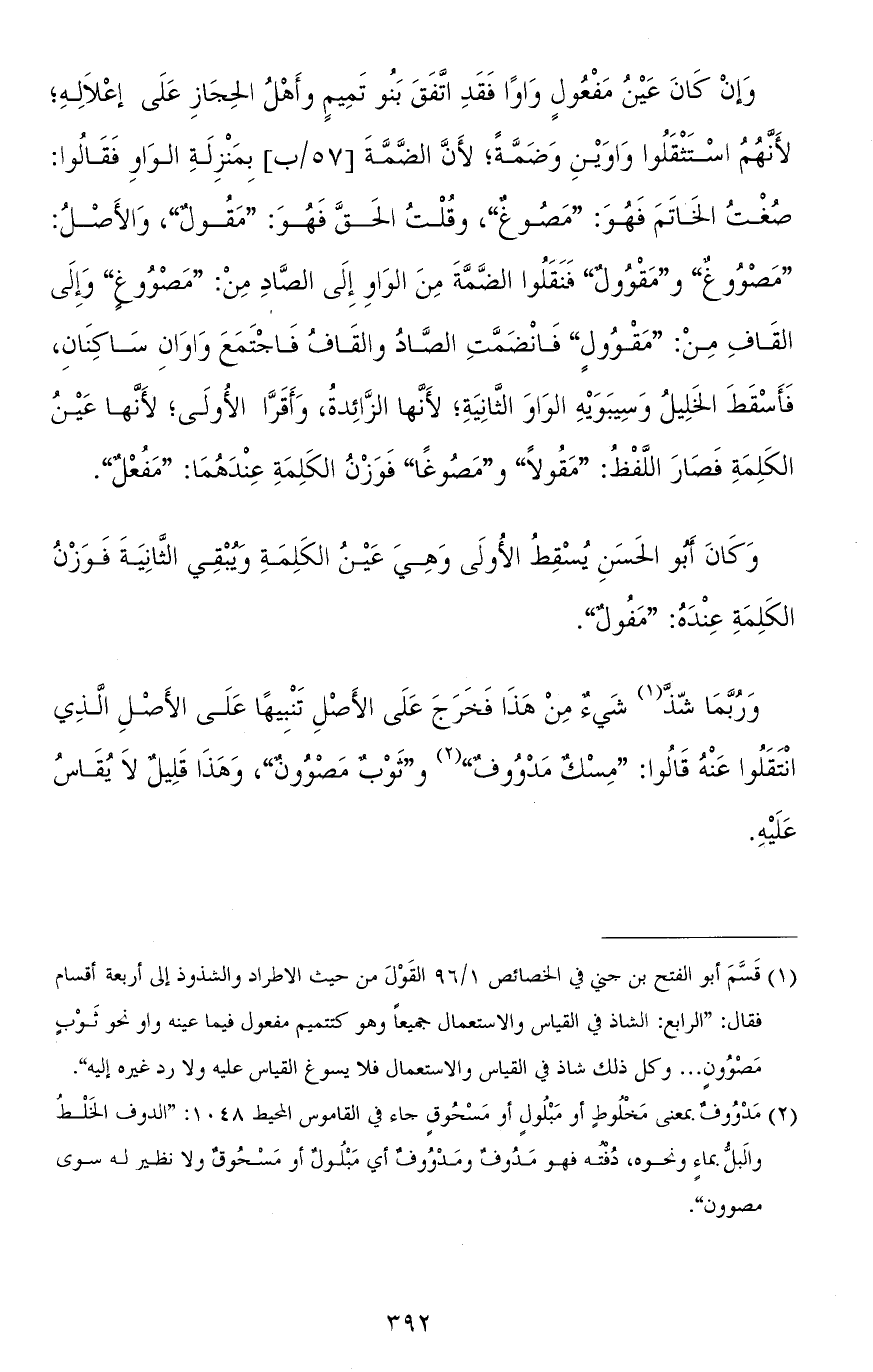 وَإنْ كَانَ عَيْنُ مَفْعُولٍ وَاوًا فَقَدِ اتَّفَقَ بَنُو تَمِيمٍ وأَهْلُ الحِجَازِ عَلَى إعْلاَلِهِ؛
لأَنَّهُمُ اسْتَثْقَلُوا وَاوَيْنِ وَضَمَّةً؛ لأَنَّ الضَّمَّةَ [٥٧/ب] بِمَنْزِلَةِ الوَاوِ فَقَالُوا:
صُغْتُ الخَاتَمَ فَهُوَ: ”مَصُوغٌ“، وقُلْتُ الحَقَّ فَهُوَ: ”مَقُولٌ“، وَالأَصْلُ:
”مَصْوُوغٌ“ و”مَقْوُولٌ“ فَنَقَلُوا الضَّمَّةَ مِنَ الوَاوِ إِلَى الصَّادِ مِنْ: ”مَصْوُوغٍ“ وَإِلَى
القَافِ مِنْ: ”مَقْوُولٍ“ فَانْضَمَّتِ الصَّادُ والقَافُ فَاجْتَمَعَ وَاوَانِ سَاكِنَانِ،
فَأَسْقَطَ الخَلِيلُ وَسِيبَوَيْهِ الوَاوَ الثَّانِيَةِ؛ لأَنَّها الزَّائِدةُ، وَأَقَرَّا الأُولَى؛ لأَنَّها عَيْنُ
الكَلِمَةِ فَصَارَ اللَّفْظُ: ”مَقُولاً“ و”مَصُوغًا“ فَوَزْنُ الكَلِمَةِ عِنْدَهُمَا: ”مَفُعْلٌ“.
وَكَانَ أَبُو الحَسَنِ يُسْقِطُ الأُولَى وَهِيَ عَيْنُ الكَلِمَةِ وَيُبْقِي الثَّانِيَةَ فَوَزْنُ
الكَلِمَةِ عِنْدَهُ: ”مَفُولٌ“.
وَرُبَّمَا شّذَّ(١) شَيءٌ مِنْ هَذَا فَخَرَجَ عَلَى الأَصْلِ تَنْبِيهًا عَلَى الأَصْلِ الَّذِي
انْتَقَلُوا عَنْهُ قَالُوا: ”مِسْكٌ مَدْوُوفٌ“(٢) و”ثَوْبٌ مَصْوُونٌ“، وَهَذَا قَلِيلٌ لاَ يُقَاسُ
عَلَيْهِ.
(١) قَسَّمَ أبو الفتح بن جني في الخصائص ٩٦/١ القَوْلَ من حيث الاطراد والشذوذ إلى أربعة أقسام
فقال: ”الرابع: الشاذ في القياس والاستعمال جميعاً وهو كتتميم مفعول فيما عينه واو نحو ثَوْبٍ
مَصْوُونٍ... وكل ذلك شاذ في القياس والاستعمال فلا يسوغ القياس عليه ولا رد غيره إليه“.
(٢) مَدْوُوفٌ بمعنى مَخْلُوطٍ أو مَبْلُولٍ أو مَسْحُوقٍ جاء في القاموس المحيط ١٠٤٨: ”الدوف الخَلْطُ
والَبلُّ بماءٍ ونحوه، دُفْتُه فهو مَدُوفٌ ومَدْوُوفٌ أي مَبْلُولٌ أو مَسْحُوقٌ ولا نظير له سوى
مصوون“.
٣٩٢